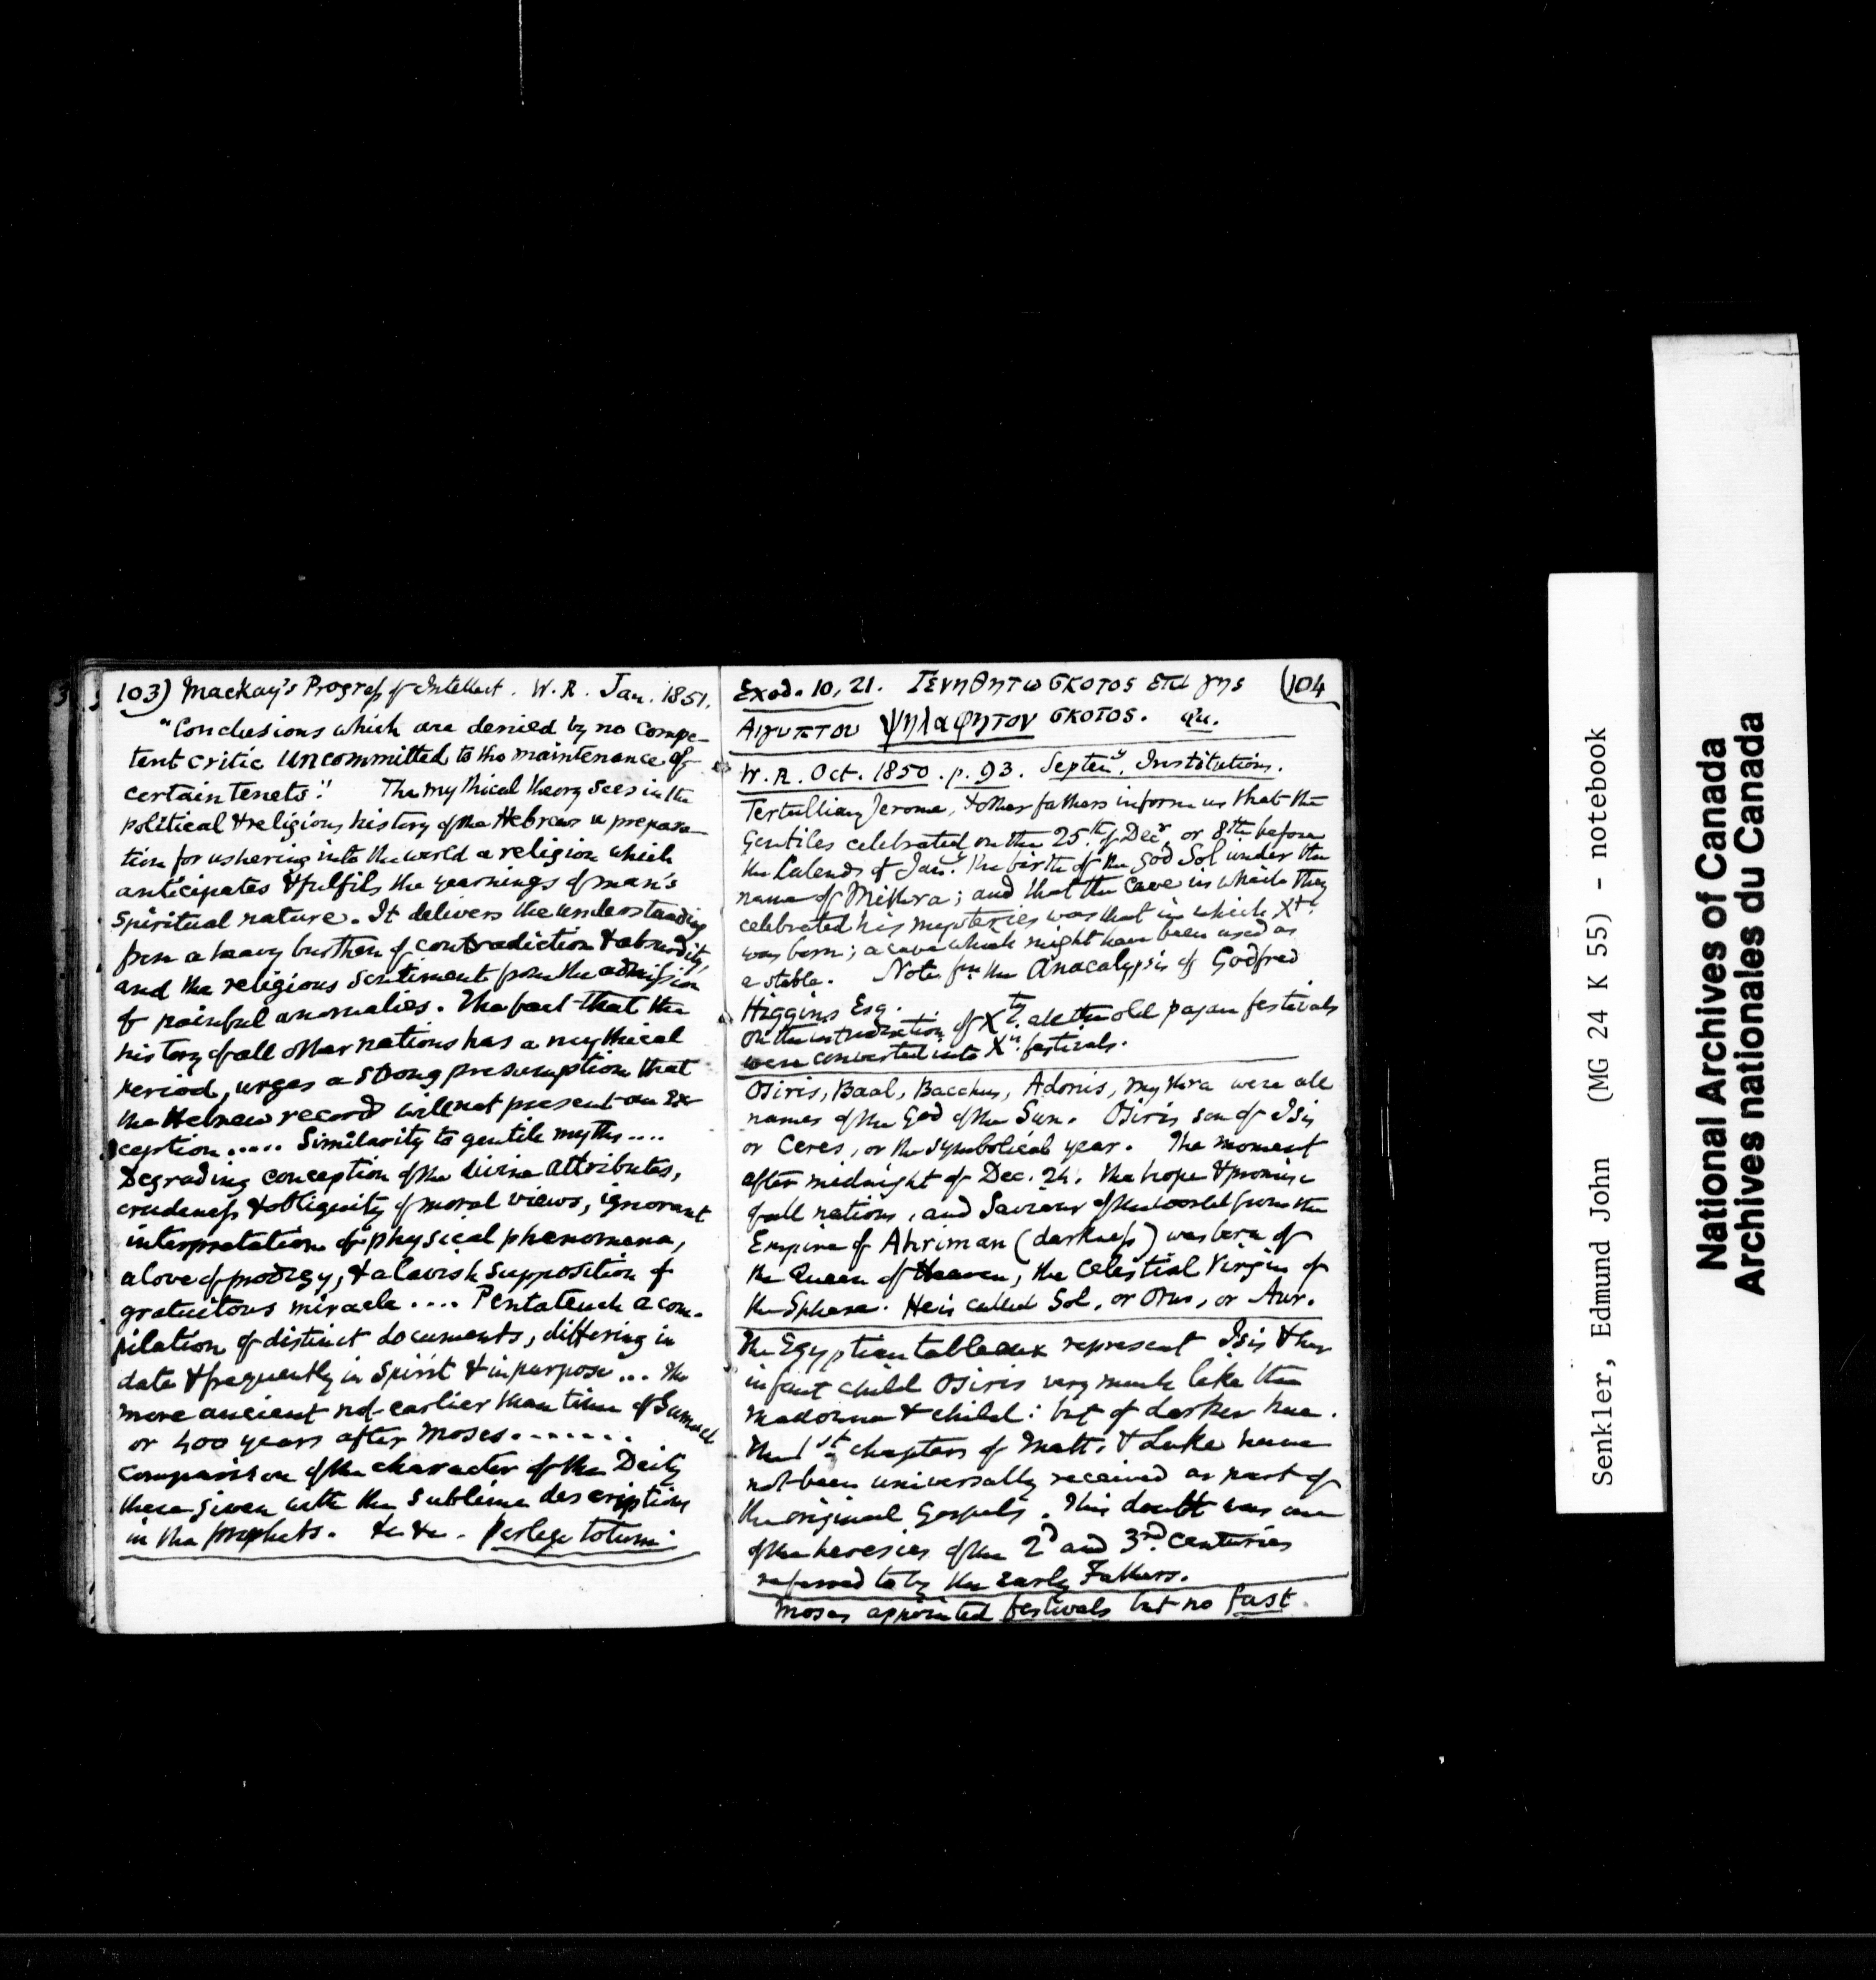 103) Mackay's Progress of Intellect. W.R. Jan. 1851.
"Conclusions which are denied by no compe-
tent critic uncommitted to the maintenance of
certain tenets." The mythical theory sees in the
political & religious history of the Hebrews a prepara-
tion for ushering into the world a religion which
anticipates & fulfils the yearnings of man's
spiritual nature. It delivers the understanding
from a heavy burthen of contradiction & absurdity,
and the religious sentiment from the admission
of painful anomalies. The fact that the
history of all other nations has a mythical
period, urges a strong presumption that
the Hebrew record will not present an ex-
ception..... Similarity to gentile myths....
Degrading conception of the divine attributes,
crudeness & obliquity of moral views, ignorant
interpretation of physical phenomena,
a love of prodigy, & a lavish supposition of
gratuitous miracle.... Pentateuch a com-
pilation of distinct documents, differing in
date & frequently in spirit & in purpose... The
more ancient not earlier than time of Samuel
or 400 years after Moses.......
Comparison of the character of the Deity
these given with the sublime descriptions
in the prophets. &c &c. Perlege totum.
Exod. 10, 21. Γενηθητω σκοτος επι γης (104
Αιγυπτου ψηλαφητον σκοτος. qu.
W.R. Oct. 1850. p. 93. Septen.y Institutions.
Tertullian, Jerome, & other fathers inform us that the
Gentiles celebrated on the 25.th of Dec.r or 8.th before
the Calends of Jan.y the birth of the god Sol under the
name of Mithra; and that the cave in which they
celebrated his mysteries was that in which X.t
was born; a cave which might have been used as
a stable. Note f.m the Anacalypsis of Godfred
Higgins Esq.
On the introduction of X.ty all the old pagan festivals
were converted into X.n festivals.
Osiris, Baal, Bacchus, Adonis, Mythra were all
names of the God of the Sun. Osiris son of Isis
or Ceres, or the symbolical year. The moment
after midnight of Dec. 24. the hope & promise
of all nations, and Saviour of the world from the
Empire of Ahriman (darkness) was born of
the Queen of Heaven, the Celestial Virgin of
the Sphere. He is called Sol, or Orus, or Aur.
The Egyptian tableaux represent Isis & her
infant child Osiris very much like the
Madonna & child: but of darker hue.
The 1st chapters of Matt. & Luke have
not been universally received as part of
the original Gospels. This doubt was one
of the heresies of the 2d and 3rd centuries
referred to by the early Fathers.
Moses appointed festivals but no fast.
Senkler, Edmund John (MG 24 K 55) - notebook
National Archives of Canada
Archives nationales du Canada